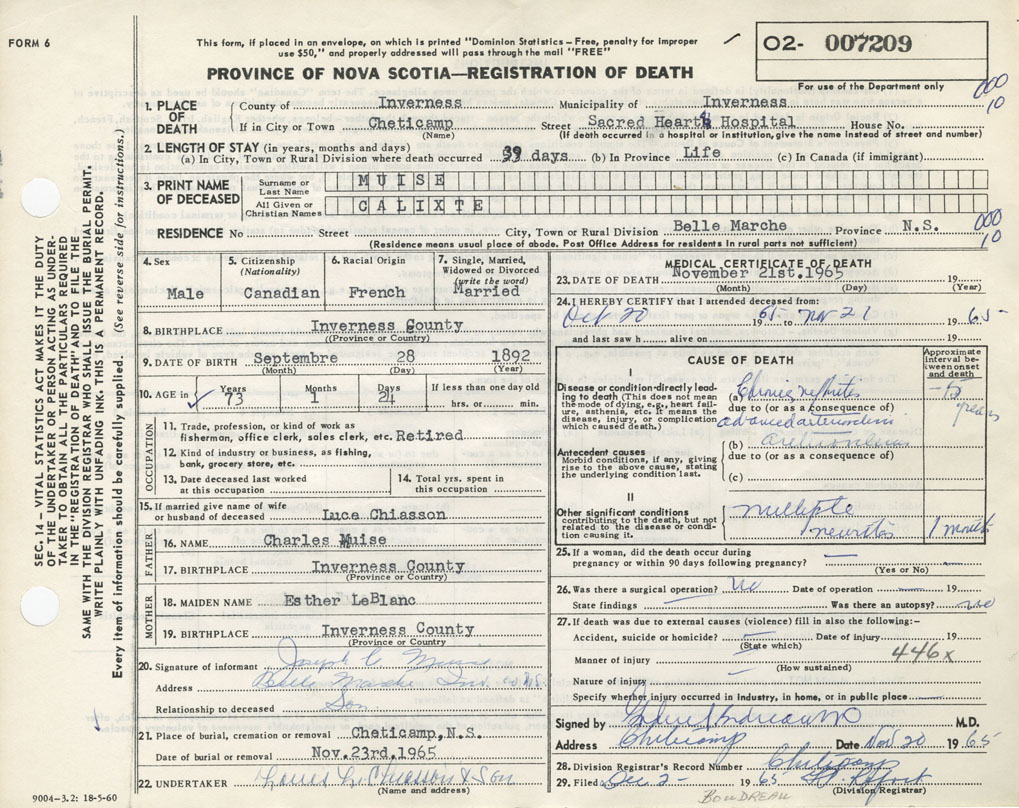 FORM 6
This form, if placed in an envelope, on which is printed "Dominion Statistics – Free, penalty for improper
use $50," and properly addressed will pass through the mail "FREE"
02- 007209
For use of the Department only
PROVINCE OF NOVA SCOTIA—REGISTRATION OF DEATH
000
10
1. PLACE OF DEATH
County of Inverness Municipality of Inverness
If in City or Town Cheticamp Street Sacred Heart Hospital House No.
(Name) (If death occurred in a hospital or institution, give the name instead of street and number)
2. LENGTH OF STAY (in years, months and days)
(a) In City, Town or Rural Division where death occurred 39 days (b) In Province Life (c) In Canada (if immigrant)
3. PRINT NAME OF DECEASED
Surname or Last Name MUISE
All Given or Christian Names CALIXTE
RESIDENCE No Street City, Town or Rural Division Belle Marche Province N.S.
000
10
(Residence means usual place of abode. Post Office Address for residents in rural parts not sufficient)
4. Sex
Male
5. Citizenship
(Nationality)
Canadian
6. Racial Origin
French
7. Single, Married,
Widowed or Divorced
(write the word)
Married
8. BIRTHPLACE Inverness County
((Province or Country)
9. DATE OF BIRTH Septembre 28 1892
(Month) (Day) (Year)
10. AGE in Years Months Days If less than one day old
73 1 24 hrs. or min.
OCCUPATION
11. Trade, profession, or kind of work as
fisherman, office clerk, sales clerk, etc. Retired
12. Kind of industry or business, as fishing,
bank, grocery store, etc.
13. Date deceased last worked
at this occupation
14. Total yrs. spent in
this occupation
15. If married give name of wife
or husband of deceased Luce Chiasson
FATHER
16. NAME Charles Muise
17. BIRTHPLACE Inverness County
(Province or Country)
MOTHER
18. MAIDEN NAME Esther LeBlanc
19. BIRTHPLACE Inverness County
(Province or Country)
20. Signature of informant Joseph C Muise
Address Belle Marche Inv. Co N.S.
Relationship to deceased Son
21. Place of burial, cremation or removal Cheticamp,N.S.
Date of burial or removal Nov.23rd,1965
22. UNDERTAKER Chiasson & Son
(Name and address)
MEDICAL CERTIFICATE OF DEATH
23. DATE OF DEATH November 21st.1965 19
(Month) (Day) (Year)
24. I HEREBY CERTIFY that I attended deceased from:
Oct 20 1965 to Nov 21 1965
and last saw h alive on 19
CAUSE OF DEATH
Approximate
interval be-
tween onset
and death
I
Disease or condition directly lead-
ing to death (This does not mean
the mode of dying, e.g., heart fail-
ure, asthenia, etc. It means the
disease, injury, or complication
which caused death.)
(a) Chronic nephrites
5
years
due to (or as a consequence of)
advanced
Antecedent causes
Morbid conditions, if any, giving
rise to the above cause, stating
the underlying condition last.
(b)
due to (or as a consequence of)
(c)
II
Other significant conditions
contributing to the death, but not
related to the disease or condi-
tion causing it.
multiple
neuritis
1 month
25. If a woman, did the death occur during
pregnancy or within 90 days following pregnancy?
(Yes or No)
26. Was there a surgical operation? No Date of operation 19
State findings Was there an autopsy? no
27. If death was due to external causes (violence) fill in also the following:–
Accident, suicide or homicide? Date of injury 19
(State which)
446x
Manner of injury
(How sustained)
Nature of injury
Specify whether injury occurred in industry, in home, or in public place
Signed by M.D.
Address Cheticamp Date Nov 20 1965
28. Division Registrar's Record Number Cheticamp
29. Filed Dec 2- 1965
(Division Registrar)
BOUDREAU
9004-3.2: 18-5-60
SEC. 14 – VITAL STATISTICS ACT MAKES IT THE DUTY
OF THE UNDERTAKER OR PERSON ACTING AS UNDER-
TAKER TO OBTAIN ALL THE PARTICULARS REQUIRED
IN THE "REGISTRATION OF DEATH" AND TO FILE THE
SAME WITH THE DIVISION REGISTRAR WHO SHALL ISSUE THE BURIAL PERMIT.
WRITE PLAINLY WITH UNFADING INK. THIS IS A PERMANENT RECORD.
Every item of information should be carefully supplied. (See reverse side for instructions.)